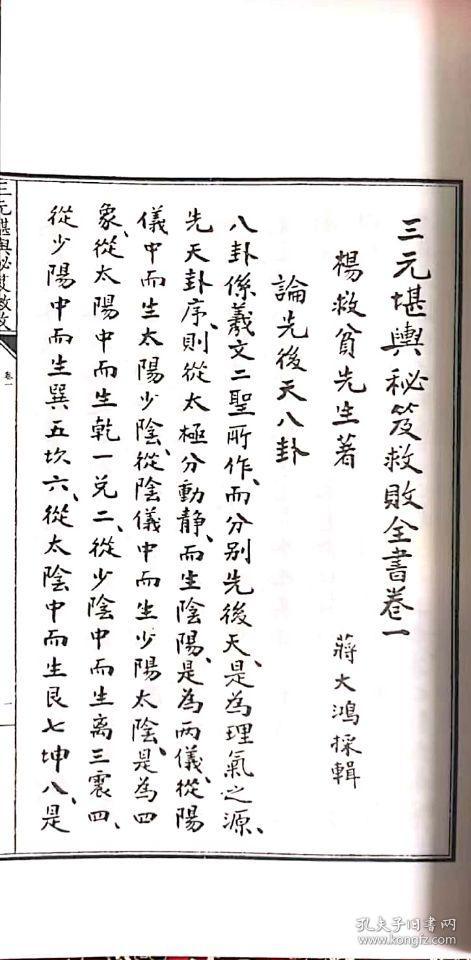 三元堪輿秘笈救敗全書卷一
楊救貧先生著
蔣大鴻採輯
論先後天八卦
八卦係羲文二聖所作、而分別先後天、是為理氣之源、
先天卦序、則從太極分動靜、而生陰陽、是為兩儀、從陽
儀中而生太陽少陰、從陰儀中而生少陽太陰、是為四
象、從太陽中而生乾一兌二、從少陰中而生离三震四、
從少陽中而生巽五坎六、從太陰中而生艮七坤八、是
三元堪輿秘笈救敗
卷一
一
孔夫子旧书网
kongfz.com